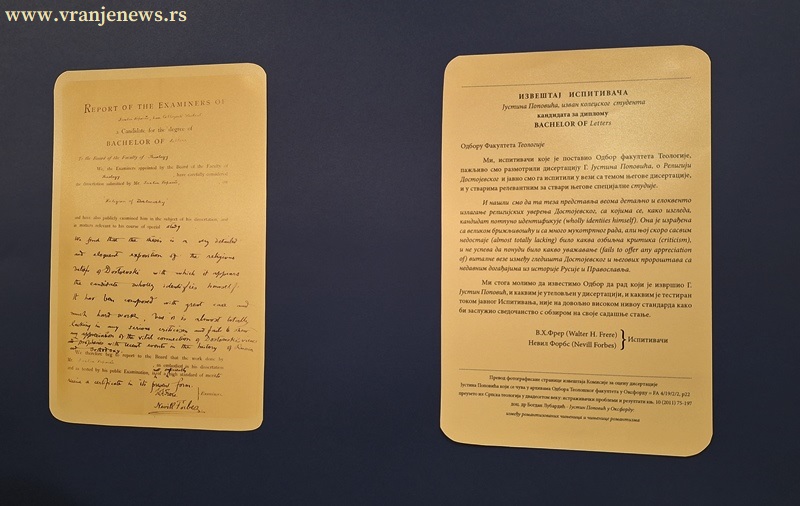 www.vranjenews.rs
REPORT OF THE EXAMINERS OF
a Candidate for the degree of
BACHELOR OF
To the Board of the Faculty of Theology
We, the Examiners appointed by the Board of the Faculty of
Theology have carefully considered
the dissertation submitted by Mr.
Religion of Dostoevsky
and have also publicly examined him in the subject of his dissertation, and
in matters relevant to his course of special study
We find that the thesis is a very detailed
and eloquent exposition of the religious
beliefs of Dostoievski with which it appears
the candidate wholly identifies himself.
It has been composed with great care and
much hard work, but it is almost totally
lacking in any serious criticism and fails to show
any appreciation of the vital connection of Dostoievski's views
and prophecies with recent events in the history of Russia
and Orthodoxy
We therefore beg to report to the Board that the work done by
as embodied in his dissertation
and as tested by his public Examination, is not of sufficiently high a standard of merit to
a certificate in its present form.
W H Frere
Nevill Forbes
Examiners.
ИЗВЕШТАЈ ИСПИТИВАЧА
Јустина Поповића, изван колеџског студента
кандидата за диплому
BACHELOR OF Letters
Одбору Факултета Теологије
Ми, испитивачи које је поставио Одбор факултета Теологије,
пажљиво смо размотрили дисертацију Г. Јустина Поповића, о Религији
Достојевског и јавно смо га испитили у вези са темом његове дисертације,
и у стварима релевантним за ствари његове специјалне студије.
И нашли смо да та теза представља веома детаљно и елоквентно
излагање религијских уверења Достојевског, са којима се, како изгледа,
кандидат потпуно идентификује (wholly identies himself). Она је израђена
са великом брижљивошћу и са много мукотрпног рада, али њој скоро сасвим
недостаје (almost totally lacking) било каква озбиљна критика (criticism),
и не успева да понуди било какво уважавање (fails to offer any appreciation
of) виталне везе између гледишта Достојевског и његових пророштава са
недавним догађајима из историје Русије и Православља.
Ми стога молимо да известимо Одбор да рад који је извршио Г.
Јустин Поповић, и каквим је утеловљен у дисертацији, и каквим је тестиран
током јавног Испитивања, није на довољно високом нивоу стандарда како
би заслужио сведочанство с обзиром на своје садашње стање.
В.Х.Фрер (Walter H. Frere)
Невил Форбс (Nevill Forbes)
Испитивачи
Превод фотографисане странице извештаја Комисије за оцену дисертације
Јустина Поповића која се чува у архивима Одбора Теолошког факултета у Оксфорду – FA 4/19/2/2, p22
преузето из: Српска теологија у двадесетом веку: истраживачки проблеми и резултати књ. 10 (2011) 75-197
док. др Богдан Лубардић – Јустин Поповић у Оксфорду:
између романтизованих чињеница и чињенице романтизма